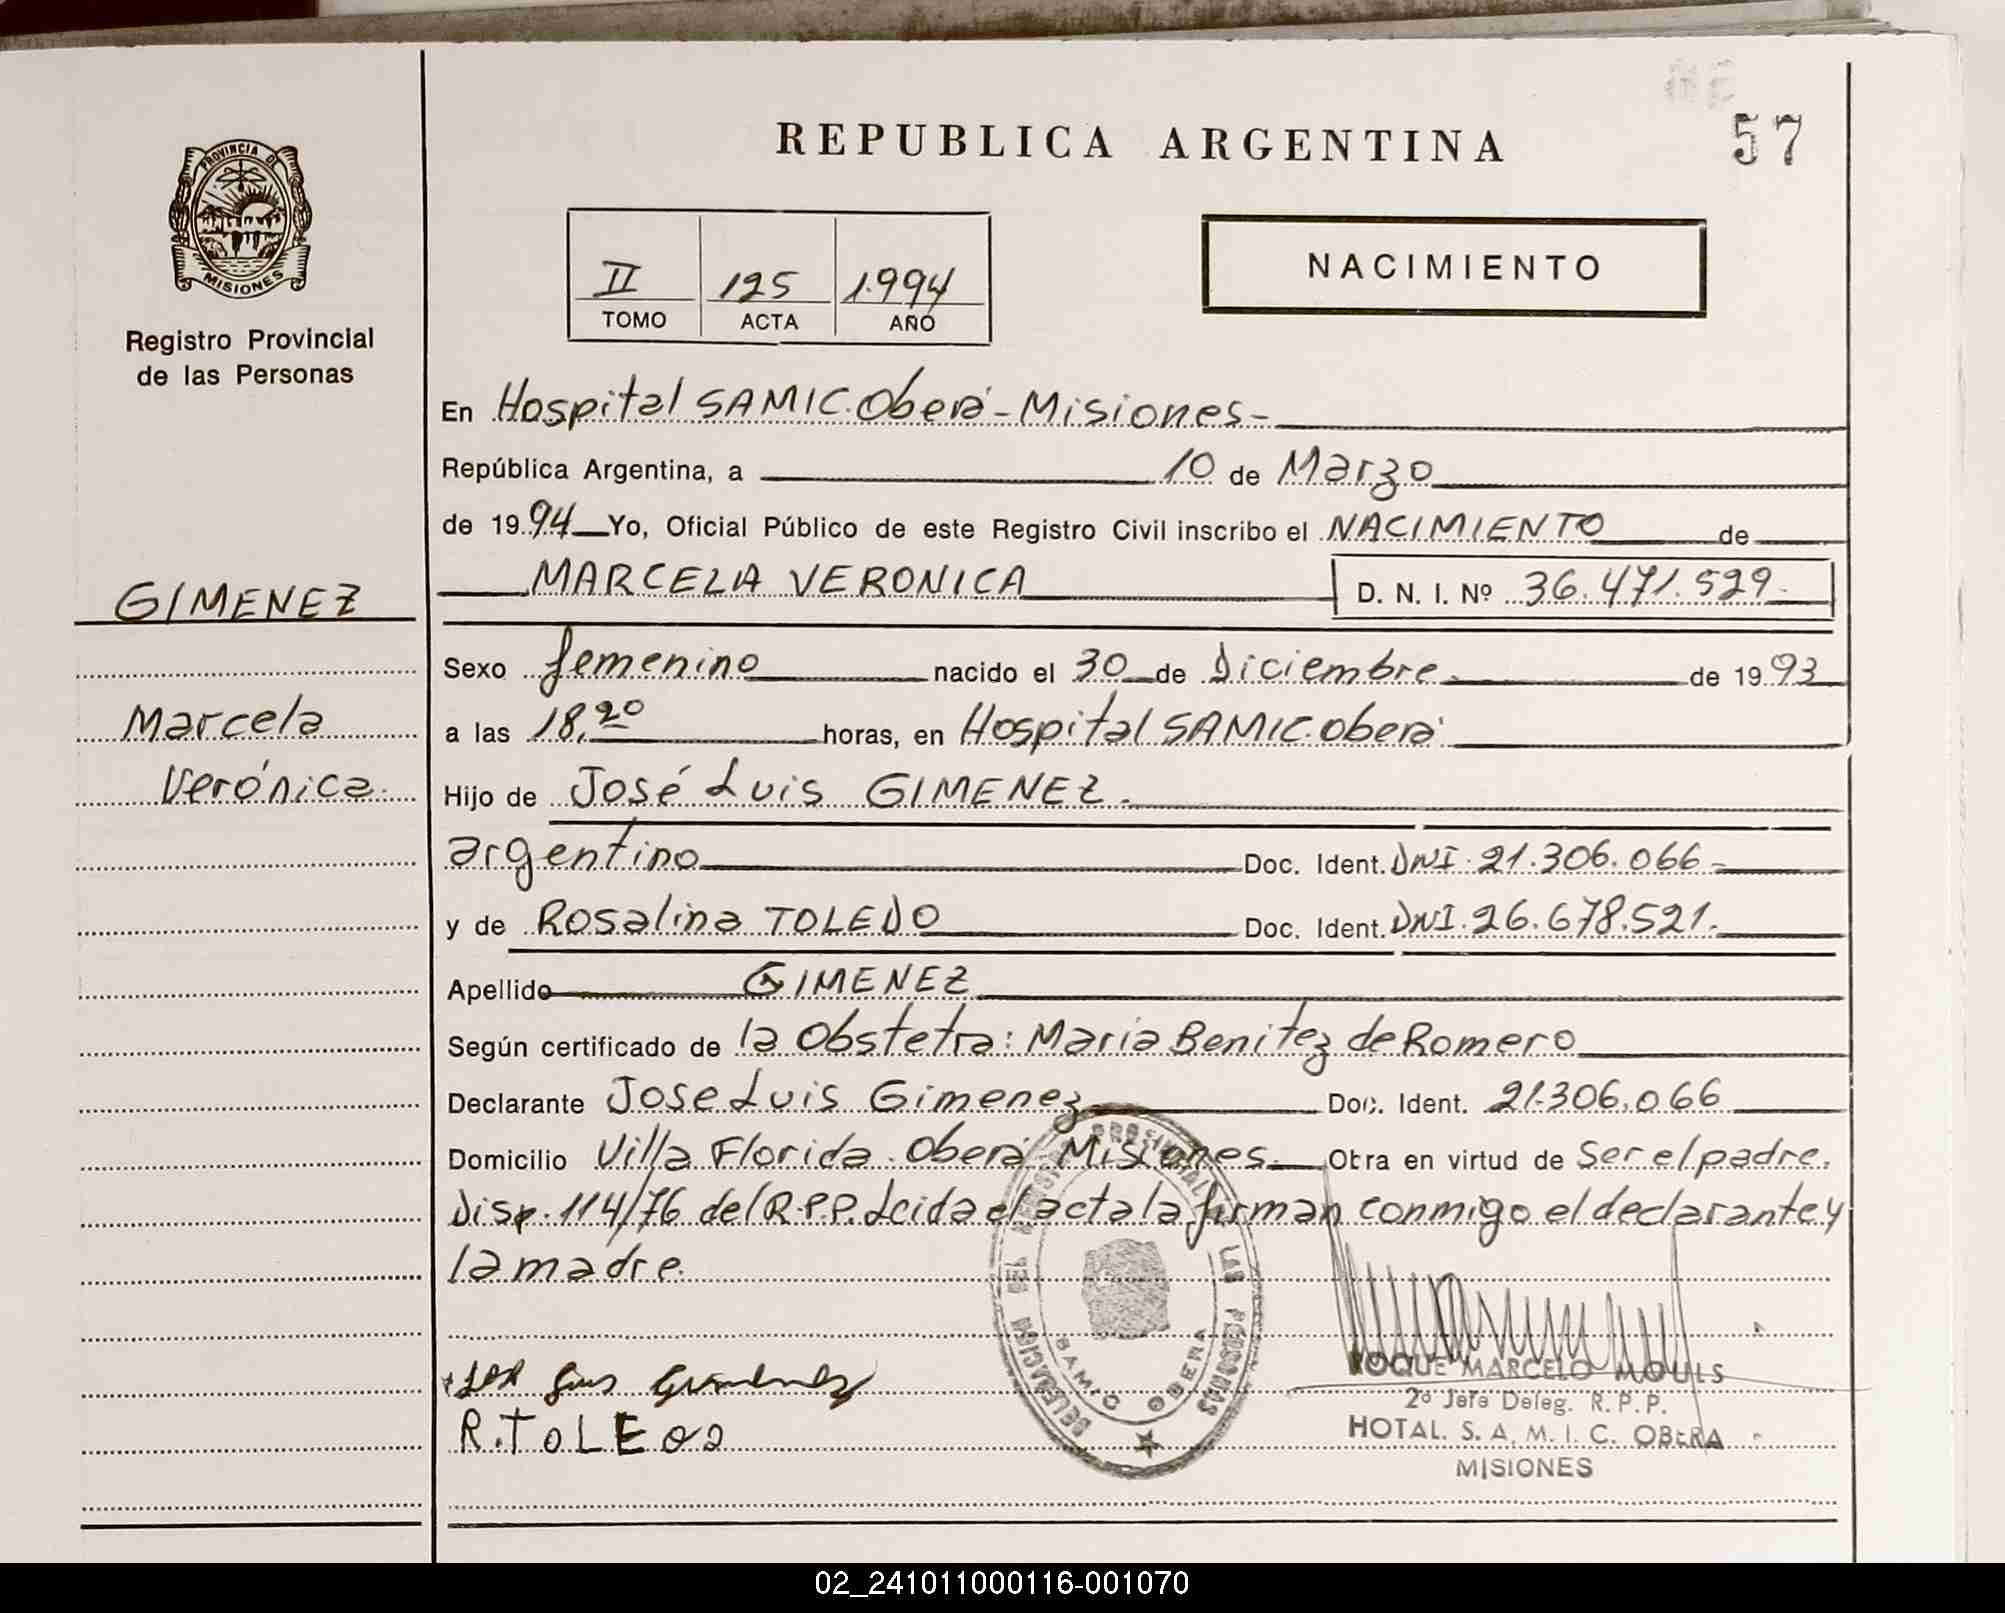 57
REPUBLICA ARGENTINA
PROVINCIA DE
MISIONES
Registro Provincial
de las Personas
II 125 1.994
TOMO ACTA AÑO
NACIMIENTO
En Hospital SAMIC. Oberá - Misiones -
República Argentina, a 10 de Marzo
de 1994 Yo, Oficial Público de este Registro Civil inscribo el NACIMIENTO de
MARCELA VERONICA D. N. I. Nº 36.471.529.
GIMENEZ
Marcela
Verónica.
Sexo femenino nacido el 30 de Diciembre. de 1993
a las 18,20 horas, en Hospital SAMIC. Oberá
Hijo de José Luis GIMENEZ.
argentino Doc. Ident. DNI. 21.306.066-
y de Rosalina TOLEDO Doc. Ident. DNI. 26.678.521.
Apellido GIMENEZ
Según certificado de la Obstetra: Maria Benitez de Romero
Declarante Jose Luis Gimenez Doc. Ident. 21.306.066
Domicilio Villa Florida. Oberá Misiones. Obra en virtud de Ser el padre.
Disp. 114/76 del R.P.P. Leida el acta la firman conmigo el declarante y
la madre.
Luis Gimenez
R. TOLEDO
DELEGACION DEL REGISTRO PROVINCIAL DE LAS PERSONAS
SAMIC OBERA
ROQUE MARCELO MOULS
2º Jefe Deleg. R. P. P.
HOTAL. S. A. M. I. C. OBERA
MISIONES
02_241011000116-001070